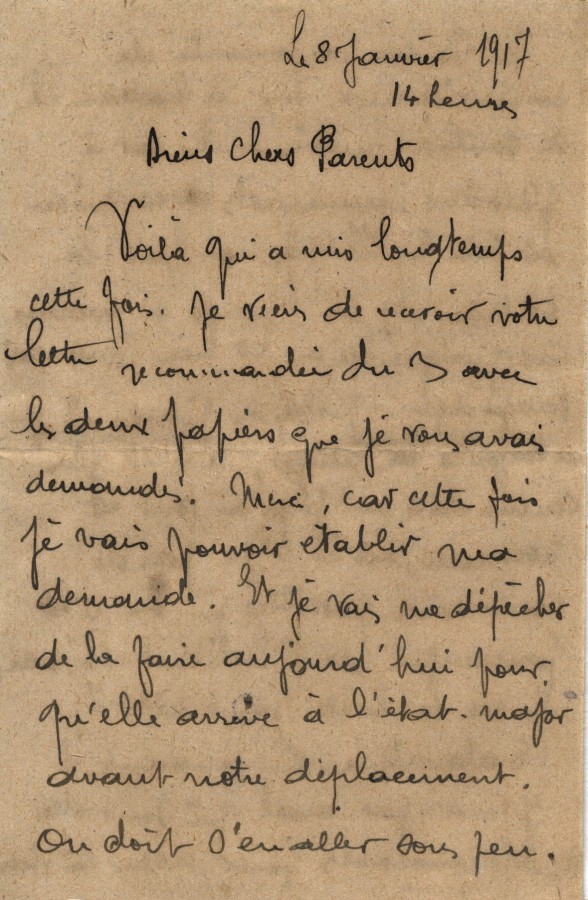 Le 8 Janvier 1917
14 heures
Biens chers Parents
Voilà qui a mis longtemps
cette fois. Je viens de recevoir votre
lettre recommandée du 3 avec
les deux papiers que je vous avais
demandés. Merci, car cette fois
je vais pouvoir etablir ma
demande. Et je vais me dépêcher
de la faire aujourd'hui pour
qu'elle arrive à l'état-major
avant notre déplacement.
On doit s'en aller sous peu.